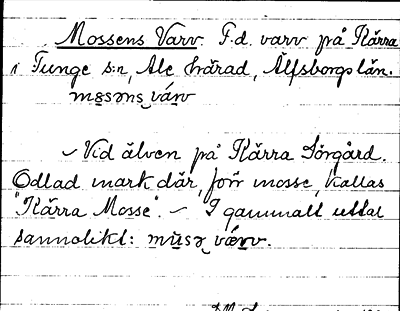 Mossens Varv. F.d. varv på Kärra
i Tunge s:n, Ale härad, Älfsborgs län.
– Vid älven på Kärra Sörgård.
Odlad mark där, förr mosse, kallas
"Kärra Mosse". – I gammalt uttal
sannolikt: